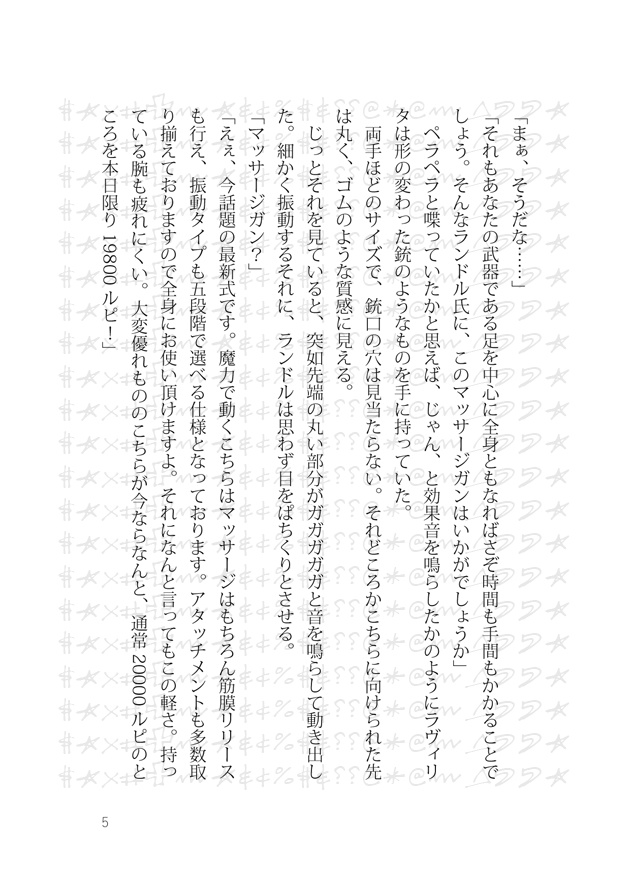 「まぁ、そうだな……」
「それもあなたの武器である足を中心に全身ともなればさぞ時間も手間もかかることで
しょう。そんなランドル氏に、このマッサージガンはいかがでしょうか」
ペラペラと喋っていたかと思えば、じゃん、と効果音を鳴らしたかのようにラヴィリ
タは形の変わった銃のようなものを手に持っていた。
両手ほどのサイズで、銃口の穴は見当たらない。それどころかこちらに向けられた先
は丸く、ゴムのような質感に見える。
じっとそれを見ていると、突如先端の丸い部分がガガガガガと音を鳴らして動き出し
た。細かく振動するそれに、ランドルは思わず目をぱちくりとさせる。
「マッサージガン？」
「えぇ、今話題の最新式です。魔力で動くこちらはマッサージはもちろん筋膜リリース
も行え、振動タイプも五段階で選べる仕様となっております。アタッチメントも多数取
り揃えておりますので全身にお使い頂けますよ。それになんと言ってもこの軽さ。持っ
ている腕も疲れにくい。大変優れもののこちらが今ならなんと、通常20000ルピのと
ころを本日限り19800ルピ！」
5